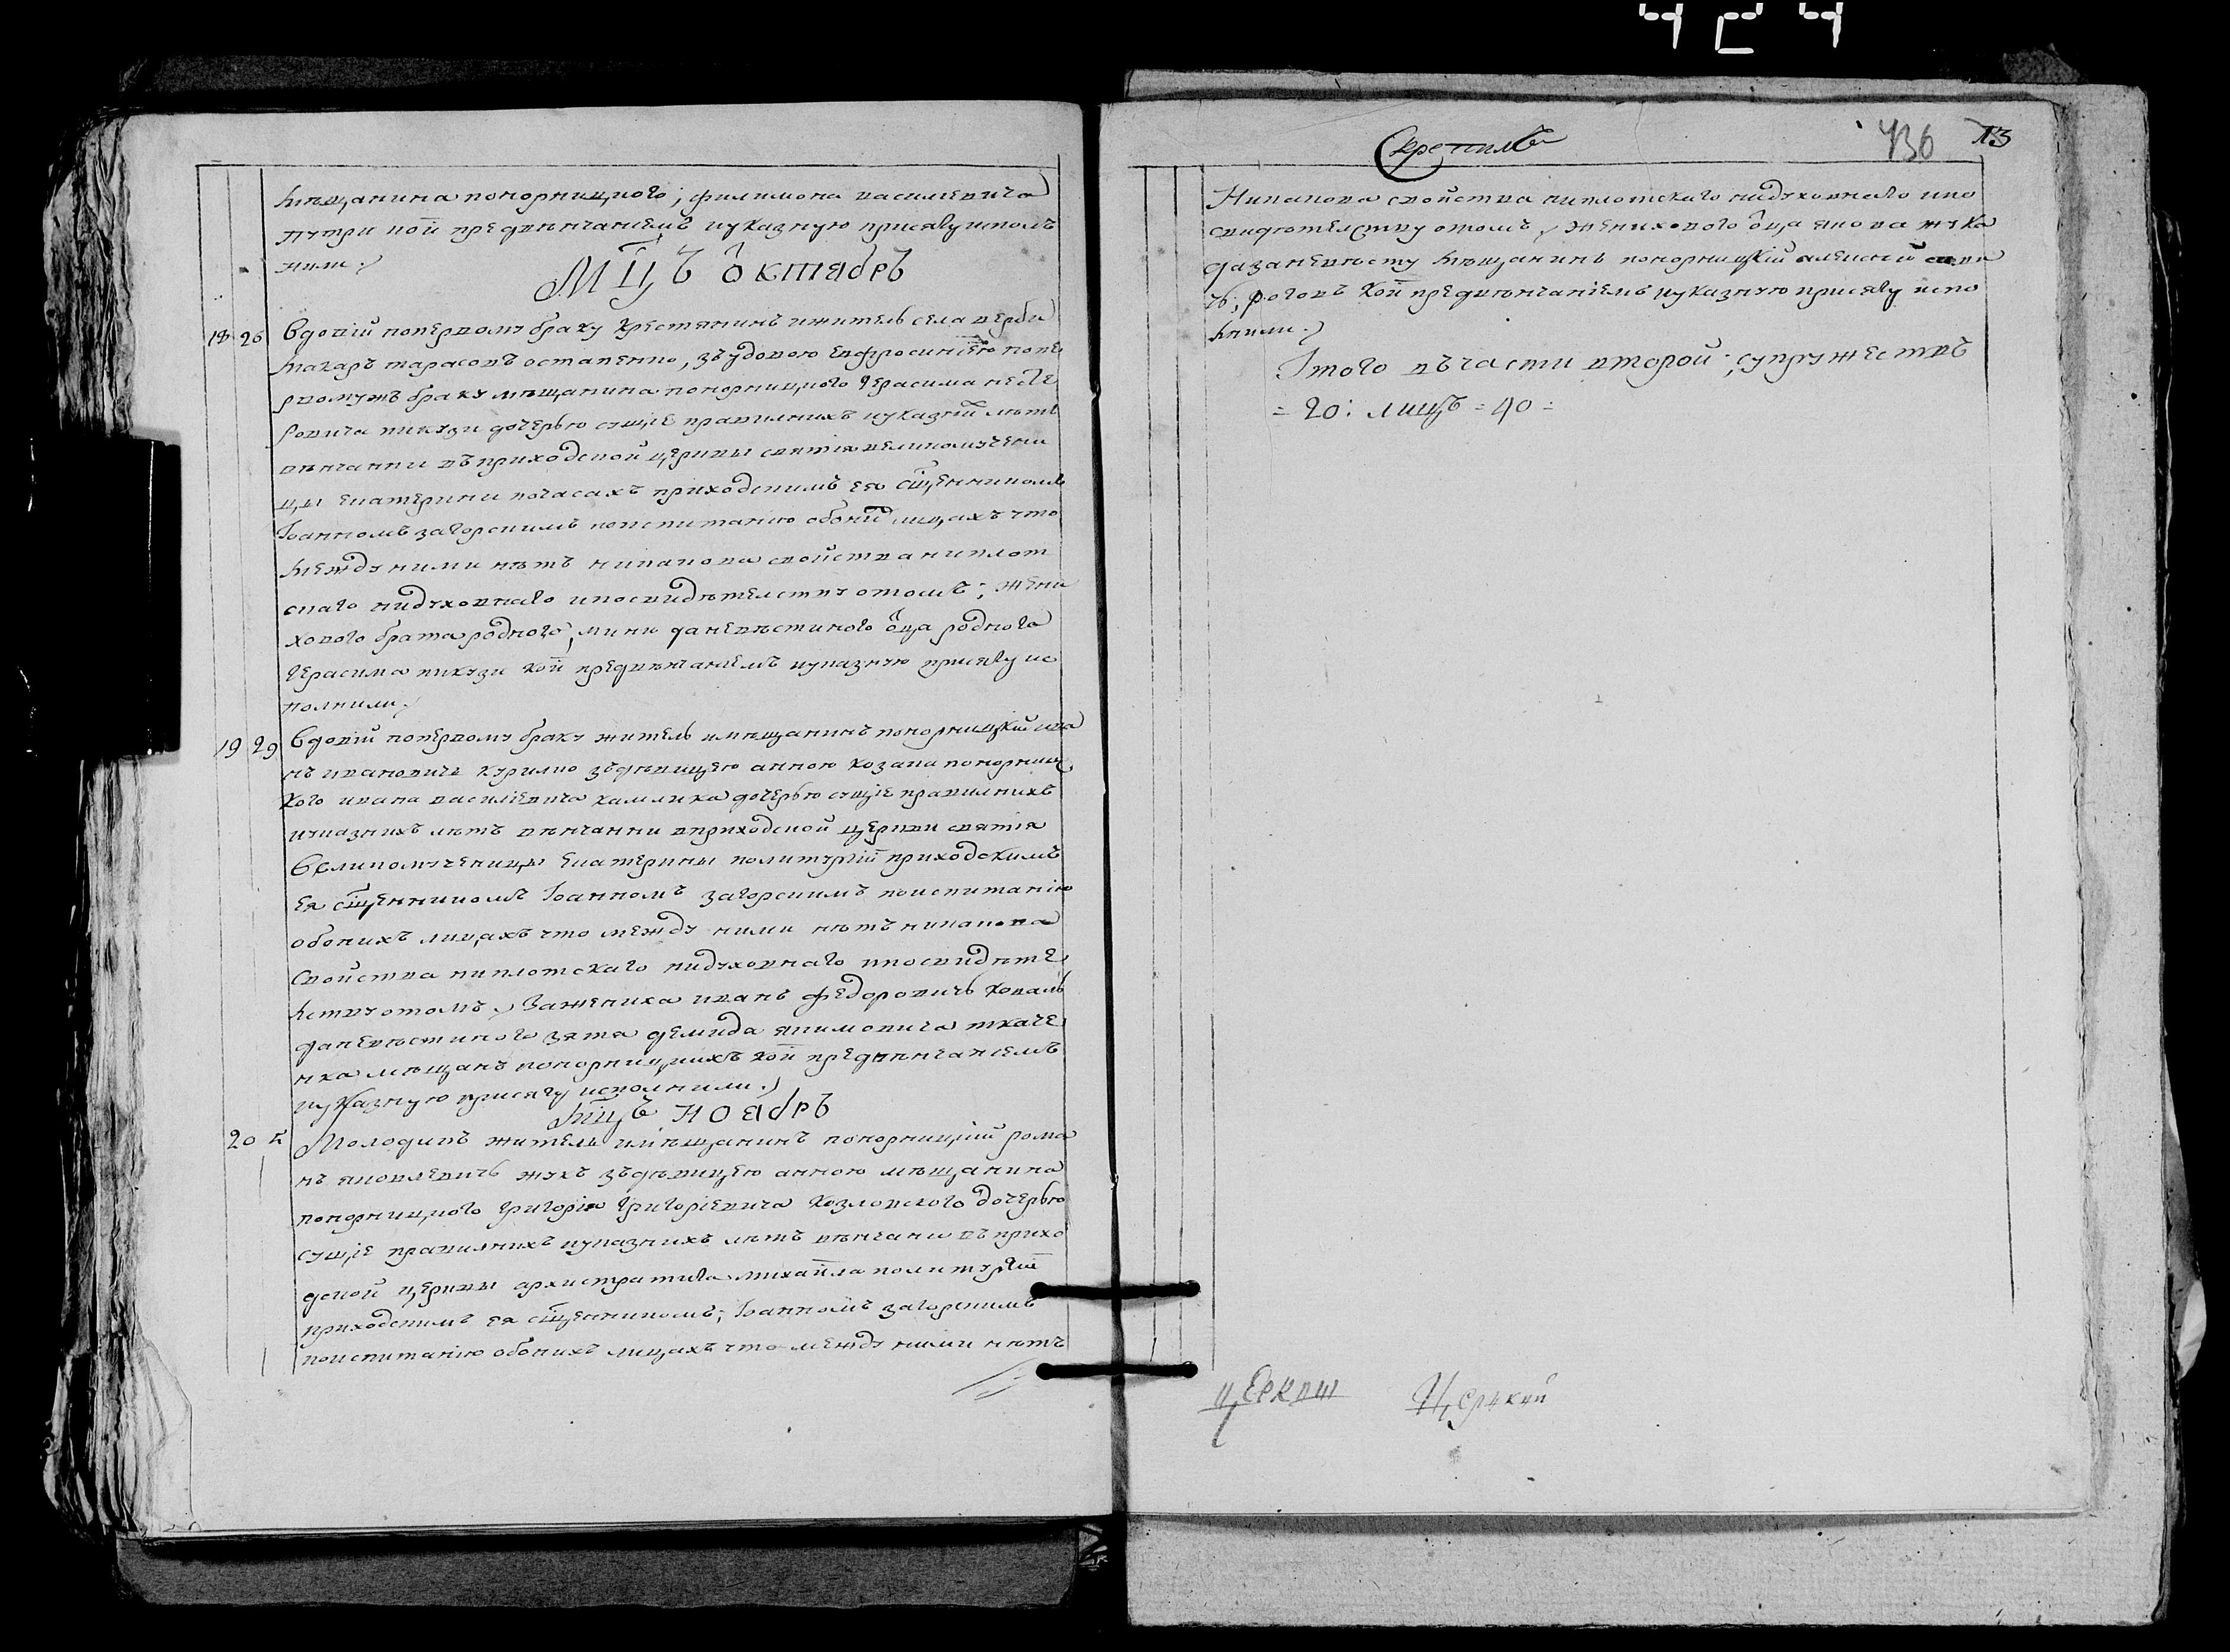 мѣщанина понорницкого, филимона василевича
путри кои̅ предвѣнчанемъ иуказную присягу испол
нили
Мц̅ъ Октябръ
18 26 Вдовій поперьвому браку крестянинъ ижитель села верби
макаръ тарасовъ остапенко, зъудовою ефросиніею попе
рвомужъ браку мѣщанина понорницкого герасима несте
ровича пикузи дочерью сущіе правилнихъ иуказній лѣтъ
вѣнчанни въприходской церквы святія великомучени
цы екатерини почасахъ приходскимъ ею сщ̅енникомъ
Іоанномъ загорскимъ поиспитанію обоихъ лицахъ что
между ними нѣтъ никакова свойства ниплот
скаго нидуховнаго ипосвидѣтелству отомъ; жени
хового брата родного, мини даневѣстиного ѻц̅а родного
герасима пикузи кои̅ предвѣнчанемъ иуказную присягу ис
полнили
19 29 Вдовій поперьвому браку житель имѣщанинъ понорницкій ива
нъ ивановичъ курило зъдѣвицею анною козака понорниц
кого ивана василіевича хамлика дочерью сущіе правилнихъ
иуказнихъ лѣтъ вѣнчанни вприходской церкви святія
Великомученицы екатерины политургіи приходскимъ
ея сщ̅енникомъ Іоанномъ загорскимъ поиспитанію
обоихъ лицахъ что между ними нѣтъ никакова
Свойства ниплотскаго нидуховнаго ипосвидѣте
лству отомъ, Зажениха иванъ федоровичъ коваль
даневѣстиного зятя демида якимовича ткаче
нка мѣщанъ понорницкихъ кои̅ предвѣнчанемъ
иуказную присягу исполнили
Мц̅ъ ноябръ
20 Молодикъ житель имѣщанинъ понорницкій рома
нъ яковлевичъ жукъ зъдѣвицею анною мѣщанина
понорницкого григорія григоріевича козловского дочерью
сущіе правилнихъ иуказнихъ лѣтъ вѣнчани въ прихо
дской церквы архистратига михаила политургіи
приходскимъ ея сщ̅енникомъ, Іоанномъ загорскимъ
поиспитанію обоихъ лицахъ что между ними нѣтъ
Скрепилъ
436 13
Никакова свойства ниплотскаго нидуховнаго ипо
свидѣтелству отомъ, женихового ѻц̅а якова жука
даневѣсту мѣщанинъ понорницкій алексій
кои̅ предвѣнчаніемъ иуказную присягу испо
лнили
Итого въчасти второй; супружествъ
= 20: лицъ = 40 =
церкви Церкий
424